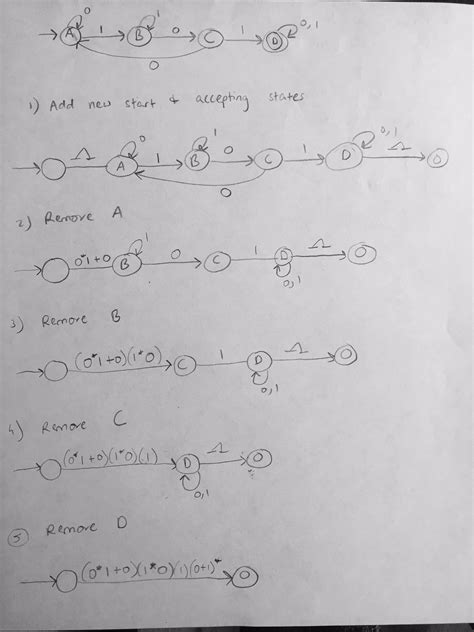 0 1 0,1
A 1 B 0 C 1 D
0
1) Add new start & accepting states
0 1 0,1
Λ A 1 B 0 C 1 D Λ
0
2) Remove A
1
0*1+0 B 0 C 1 D Λ
0,1
3) Remove B
(0*1+0)(1*0) C 1 D Λ
0,1
4) Remove C
(0*1+0)(1*0)(1) D Λ
0,1
5 Remove D
(0*1+0)(1*0)(1)(0+1)*